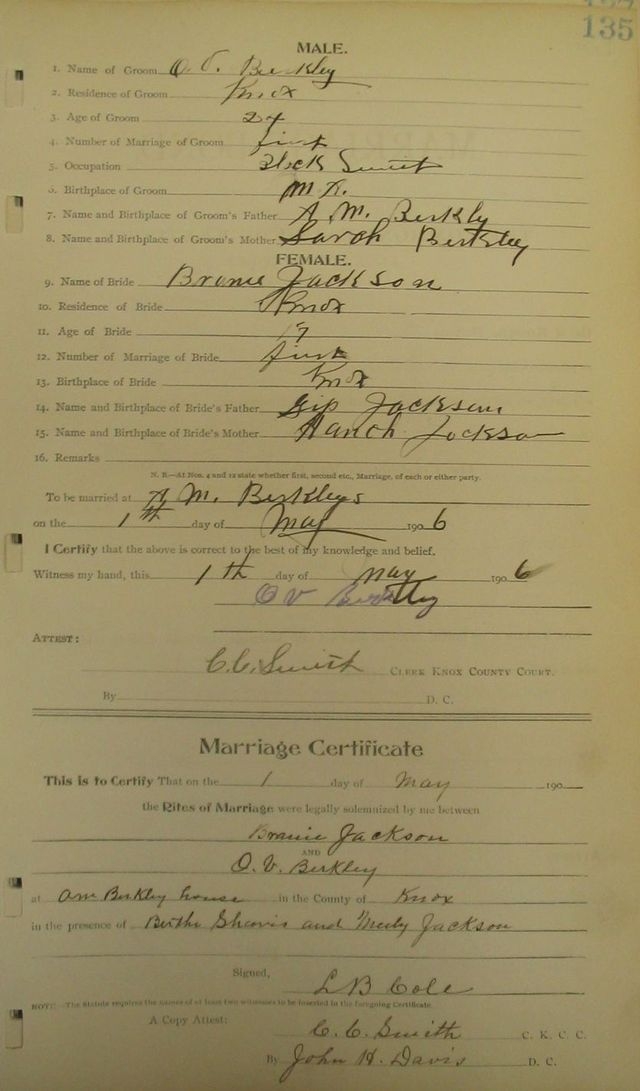 135
MALE.
1. Name of Groom O. V. Berkley
2. Residence of Groom Knox
3. Age of Groom 24
4. Number of Marriage of Groom first
5. Occupation Black Smith
6. Birthplace of Groom
7. Name and Birthplace of Groom's Father A. M. Berkly
8. Name and Birthplace of Groom's Mother Sarah Berkley
FEMALE.
9. Name of Bride Jackson
10. Residence of Bride Knox
11. Age of Bride 17
12. Number of Marriage of Bride first
13. Birthplace of Bride Knox
14. Name and Birthplace of Bride's Father Gip Jackson
15. Name and Birthplace of Bride's Mother Jackson
16. Remarks
N. B.—At Nos. 4 and 12 state whether first, second etc., Marriage, of each or either party.
To be married at A M. Berkleys
on the 1th day of May 1906
I Certify that the above is correct to the best of my knowledge and belief.
Witness my hand, this 1th day of may 1906
O V Berkley
ATTEST:
C. C. Smith CLERK KNOX COUNTY COURT.
By D. C.
Marriage Certificate
This is to Certify That on the 1 day of May 190
the Rites of Marriage were legally solemnized by me between
Jackson
AND
O. V. Berkley
at Am Berkley house in the County of Knox
in the presence of and Jackson
Signed,
L B Cole
NOTE.—The Statute requires the names of at least two witnesses to be inserted in the foregoing Certificate.
A Copy Attest:
C. C. Smith C. K. C. C.
By John H. Davis D. C.